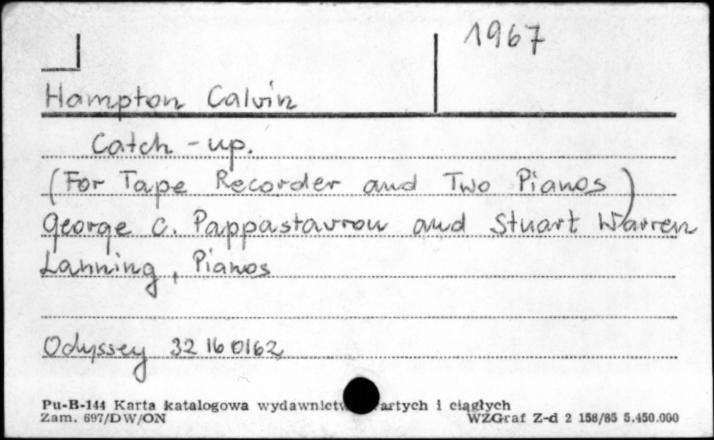 1967
Hampton Calvin
Catch-up.
(For Tape Recorder and Two Pianos)
George C. Pappastavrou and Stuart Warren
Lanning, Pianos
Odyssey 32 16 0162
Pu-B-144 Karta katalogowa wydawnictw artych i ciągłych
Zam. 697/DW/ON WZGraf Z-d 2 158/85 5.450.000